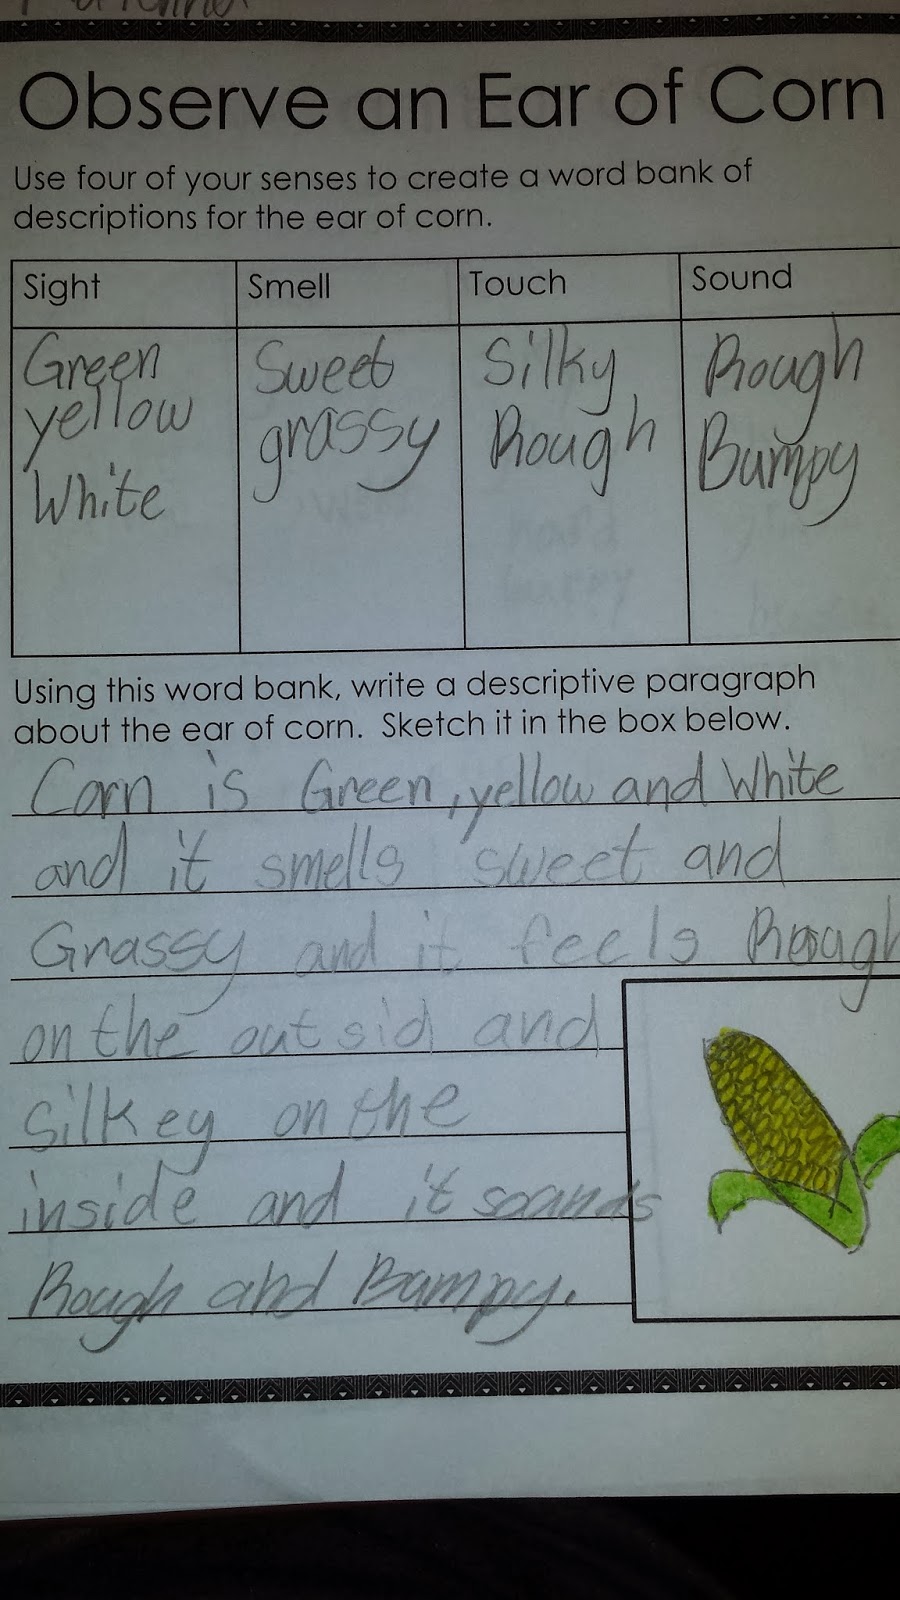 Observe an Ear of Corn
Use four of your senses to create a word bank of
descriptions for the ear of corn.
Sight Smell Touch Sound
Green Sweet Silky Rough
yellow grassy Rough Bumpy
White
Using this word bank, write a descriptive paragraph
about the ear of corn. Sketch it in the box below.
Corn is Green, yellow and White
and it smells sweet and
Grassy and it feels Rough
on the outsid and
Silkey on the
inside and it soands
Rough and Bumpy.